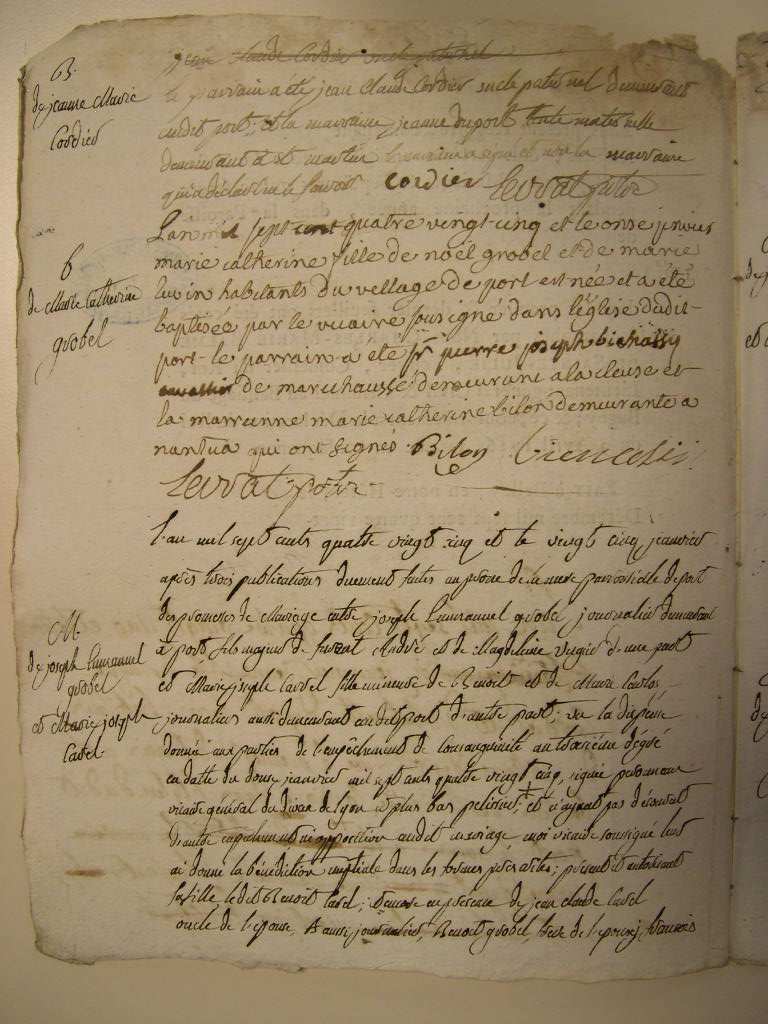 B.
de jeanne Marie
Cordier
jean claude Cordier oncle paternel
le parrain a été jean Claude Cordier oncle paternel demeurant
audit port; et la marraine jeanne duport tante maternelle
demeurant a st martin le parrain a signé et non la marraine
qui a déclaré ne le savoir Cordier
B
de Marie Catherine
grobel
L'an mil sept cent quatre vingt-cinq et le onse jenvier
marie catherine fille de noël grobel et de marie
habitants du vellage de port est née et a été
baptisée par le vicaire sousigné dans l'église dudit-
port- le parrain a été sr pierre joseph
de marechaussé demeurant a la cluse et
la marrenne marie catherine bilon demeurante a
nantua qui ont signés. Bilon
M
de joseph Emmanuel
grobel
et Marie joseph
Cavel
L'an mil sept cents quatre vingt cinq et le vingt cinq jeanvier
après trois publications duement faites au prone de la messe paroissiale de port
des promesses de Mariage entre joseph Emmanuel grobel journalier demeurant
a port fils majeur de André et de Magdeleine d'une part
et Marie joseph Cavel fille mineure de Benoit et de Marie
journaliers aussi demeurant audit port d'autre part; vu la dispense
donnée aux parties de l'empêchement de Consanguinité au troisième degré
en datte du douse jeanvier mil sept cents quatre vingt cinq, signée
vicaire général du diocese de lyon et plus bas + et n'ayant pas découvert
d'autre empechement ni opposition audit mariage moi vicaire soussigné leur
ai donné la bénédiction nuptiale dans les formes prescrites; présent et autorisant
sa fille ledit Benoit Cavel; de meme en présence de jean claude Cavel
oncle de l'epouse, aussi journalier, Benoit grobel, frere de l'epoux,